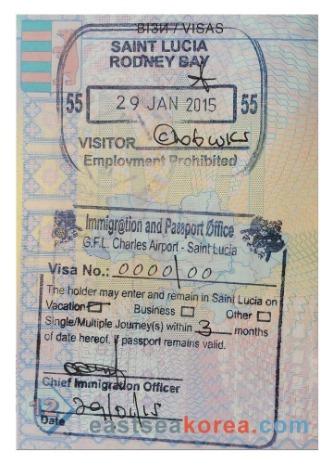 ВІЗИ / VISAS
SAINT LUCIA
RODNEY BAY
55 29 JAN 2015 55
VISITOR
Employment Prohibited
Immigration and Passport Office
G.F.L. Charles Airport - Saint Lucia
Visa No.: 0000/00
The holder may enter and remain in Saint Lucia on
Vacation Business Other
Single/Multiple Journey(s) within 3 months
of date hereof, if passport remains valid.
Chief Immigration Officer
12 29/01/15
Date
eastseakorea.com